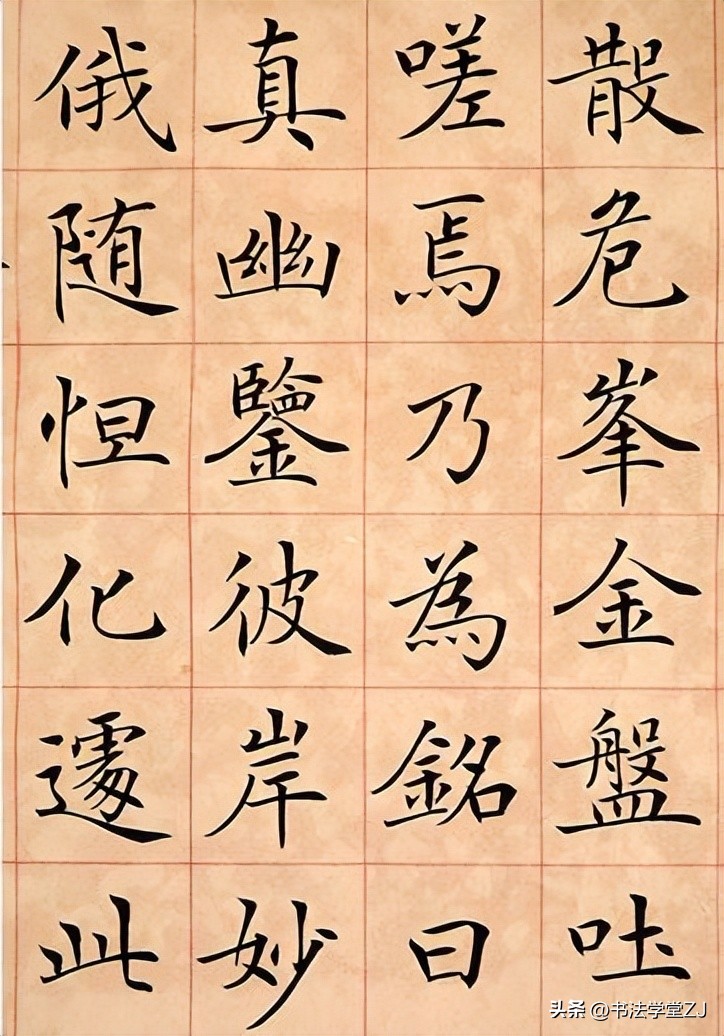 散危峯金盤吐
嗟焉乃為銘曰
真幽鑒彼岸妙
俄随怛化遽此
头条 @书法学堂ZJ